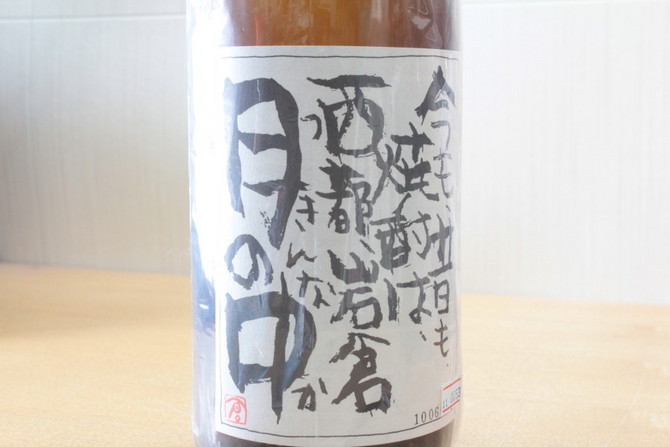 今も、昔も、
焼酎は、
西都、岩倉
月の中
つきんなか
1006